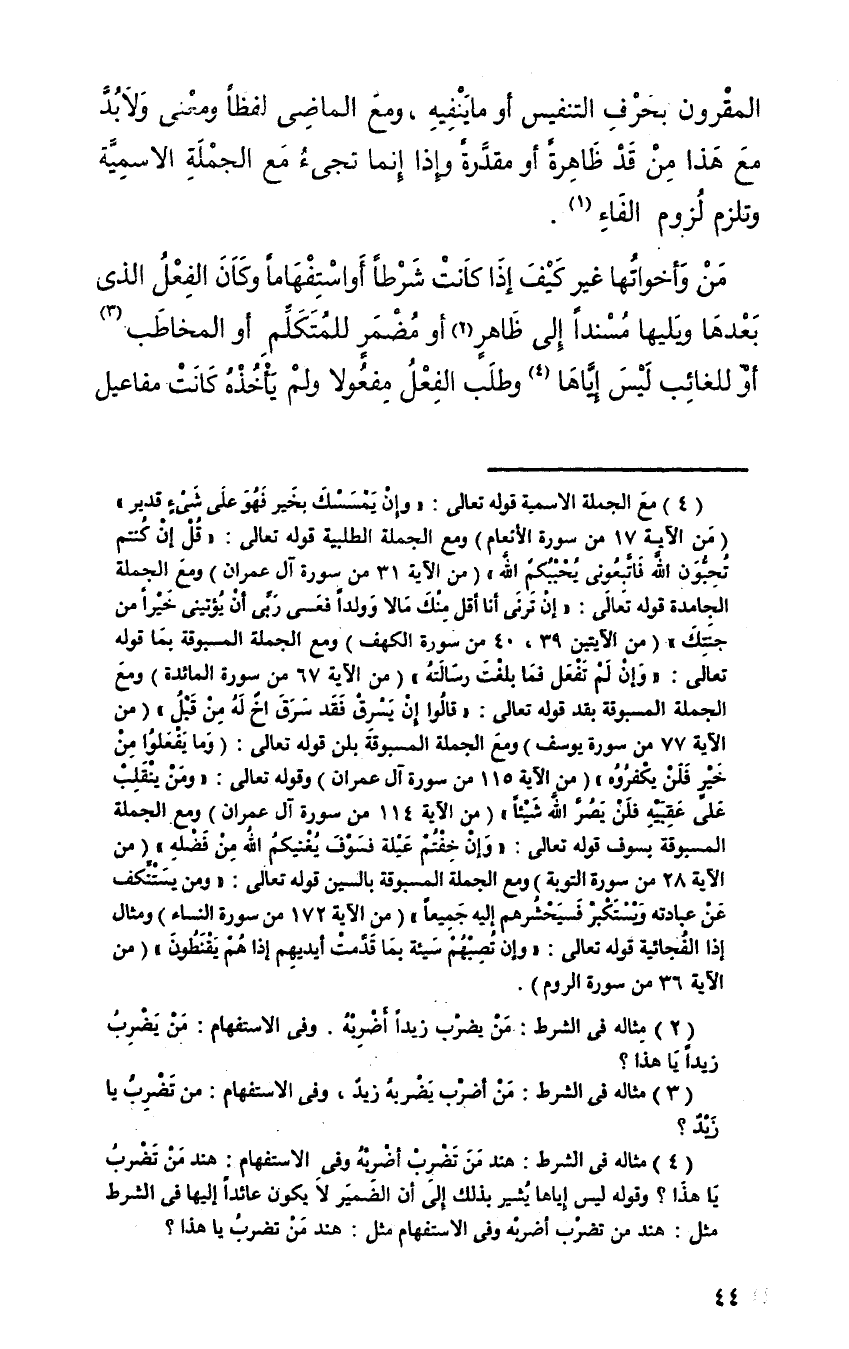 المقْرون بحَرْفِ التنفيس أو ماينْفِيهِ ، ومعَ الماضِى لفظاً ومعْنى وَلَابُدَّ
مَعَ هَذا مِنْ قَدْ ظَاهِرةً أو مقدَّرةً وإذا إنما تجىءُ مَع الجمْلَةِ الاسميَّة
وتلزم لُزوم الفَاءِ (١) .
مَنْ وَأخواتُها غير كَيْفَ إذَا كانتْ شَرْطاً أواسْتِفْهَاماً وكَانَ الفِعْلُ الذى
بَعْدهَا ويَليها مُسْنداً إلى ظَاهرٍ (٢) أو مُضْمَرٍ للمُتَكَلِّمِ أو المخاطَب (٣)
أوْ للغائِب لَيْسَ إيَّاهَا (٤) وطلَب الفِعْلُ مفعُولا ولمْ يَأْخُذْهُ كَانَتْ مفاعيل
( ٤ ) معَ الجملة الاسمية قوله تعالى : « وإنْ يَمْسَسْكَ بخَير فَهُوَ علَى شَىْءٍ قدير »
( مَن الآيـة ١٧ من سورة الأنعام ) ومع الجملة الطلبية قوله تعالى : « قُلْ إنْ كُنتم
تُحِبُّوَن اللهَ فَاتَّبعُونى يُحْبِبْكمُ اللهُ » ( من الآية ٣١ من سورة آل عمران ) ومعَ الجملة
الجامدة قوله تعالَى : « إنْ تَرنَى أنا أقل مِنْكَ مَالا وَولداً فعَسى رَبَّى أنْ يُؤتينى خَيْراً من
جنتِكَ » ( من الآيتين ٣٩ ، ٤٠ من سورة الكهف ) ومع الجملة المسبوقة بمَا قوله
تعالى : « وَإنْ لَمْ تَفْعَل فمَا بلغْتَ رسَالتَهُ » ( من الآية ٦٧ من سورة المائدة ) ومعَ
الجملة المسبوقة بقد قوله تعالى : « قالُوا إنْ يَسْرِقْ فَقَد سَرَقَ اخٌ لَهُ مِنْ قَبْلُ » ( من
الآية ٧٧ من سورة يوسف ) ومعَ الجملة المسبوقَة بلن قوله تعالى : ( وَما يَفْعَلوُا مِنْ
خَيْرٍ فَلَنْ يكْفرُوُه » ( من الآية ١١٥ من سورة آل عمران ) وقوله تعالى : « ومَنْ ينْقَلِبْ
عَلَى عَقِبَيْهِ فلَنْ يَضُرَّ اللهَ شَيْئاً » ( من الآية ١١٤ من سورة آل عمران ) ومع الجملة
المسبوقة بسوف قوله تعالى : « وَإنْ خِفْتُمْ عَيْلة فسَوْفَ يُغْنيكمُ اللهُ مِنْ فَضْله » ( من
الآية ٢٨ من سورة التوبة ) ومع الجملة المسبوقة بالسين قوله تعالى : « ومن يسْتَنْكف
عَنْ عبادته وَيَسْتكبِرْ فَسيَحْشُرهم إليه جَميعاً » ( من الآية ١٧٢ من سورة النساء ) ومثال
إذا الفُجائية قوله تعالى : « وإن تُصِبْهُمْ سَيئة بمَا قَدَّمتْ أيديهم إذا هُمْ يَقْنَطُونَ » ( من
الآية ٣٦ من سورة الروم ) .
( ٢ ) مثاله فى الشرط : مَنْ يضرْب زيداً أَضْربْهُ . وفى الاستفهام : مَنْ يَضْرِبُ
زيداً يَا هذا ؟
( ٣ ) مثاله فى الشرط : مَنْ أضرْب يَضْربهُ زيدٌ ، وفى الاستفهام : من تَضْرِبُ يا
زَيْدٌ ؟
( ٤ ) مثاله فى الشرط : هند مَنَ تَضْرِبْ أضْربْهُ وفى الاستفهام : هند مَنْ تَضْرِبُ
يَا هذَا ؟ وقوله ليس إياها يُشير بذلك إلى أن الضَمِيَر لاَ يكون عائداً إليها فى الشرط
مثل : هند من تضرْب أضربْه وفى الاستفهام مثل : هند مَنْ تضربُ يا هذا ؟
٤٤